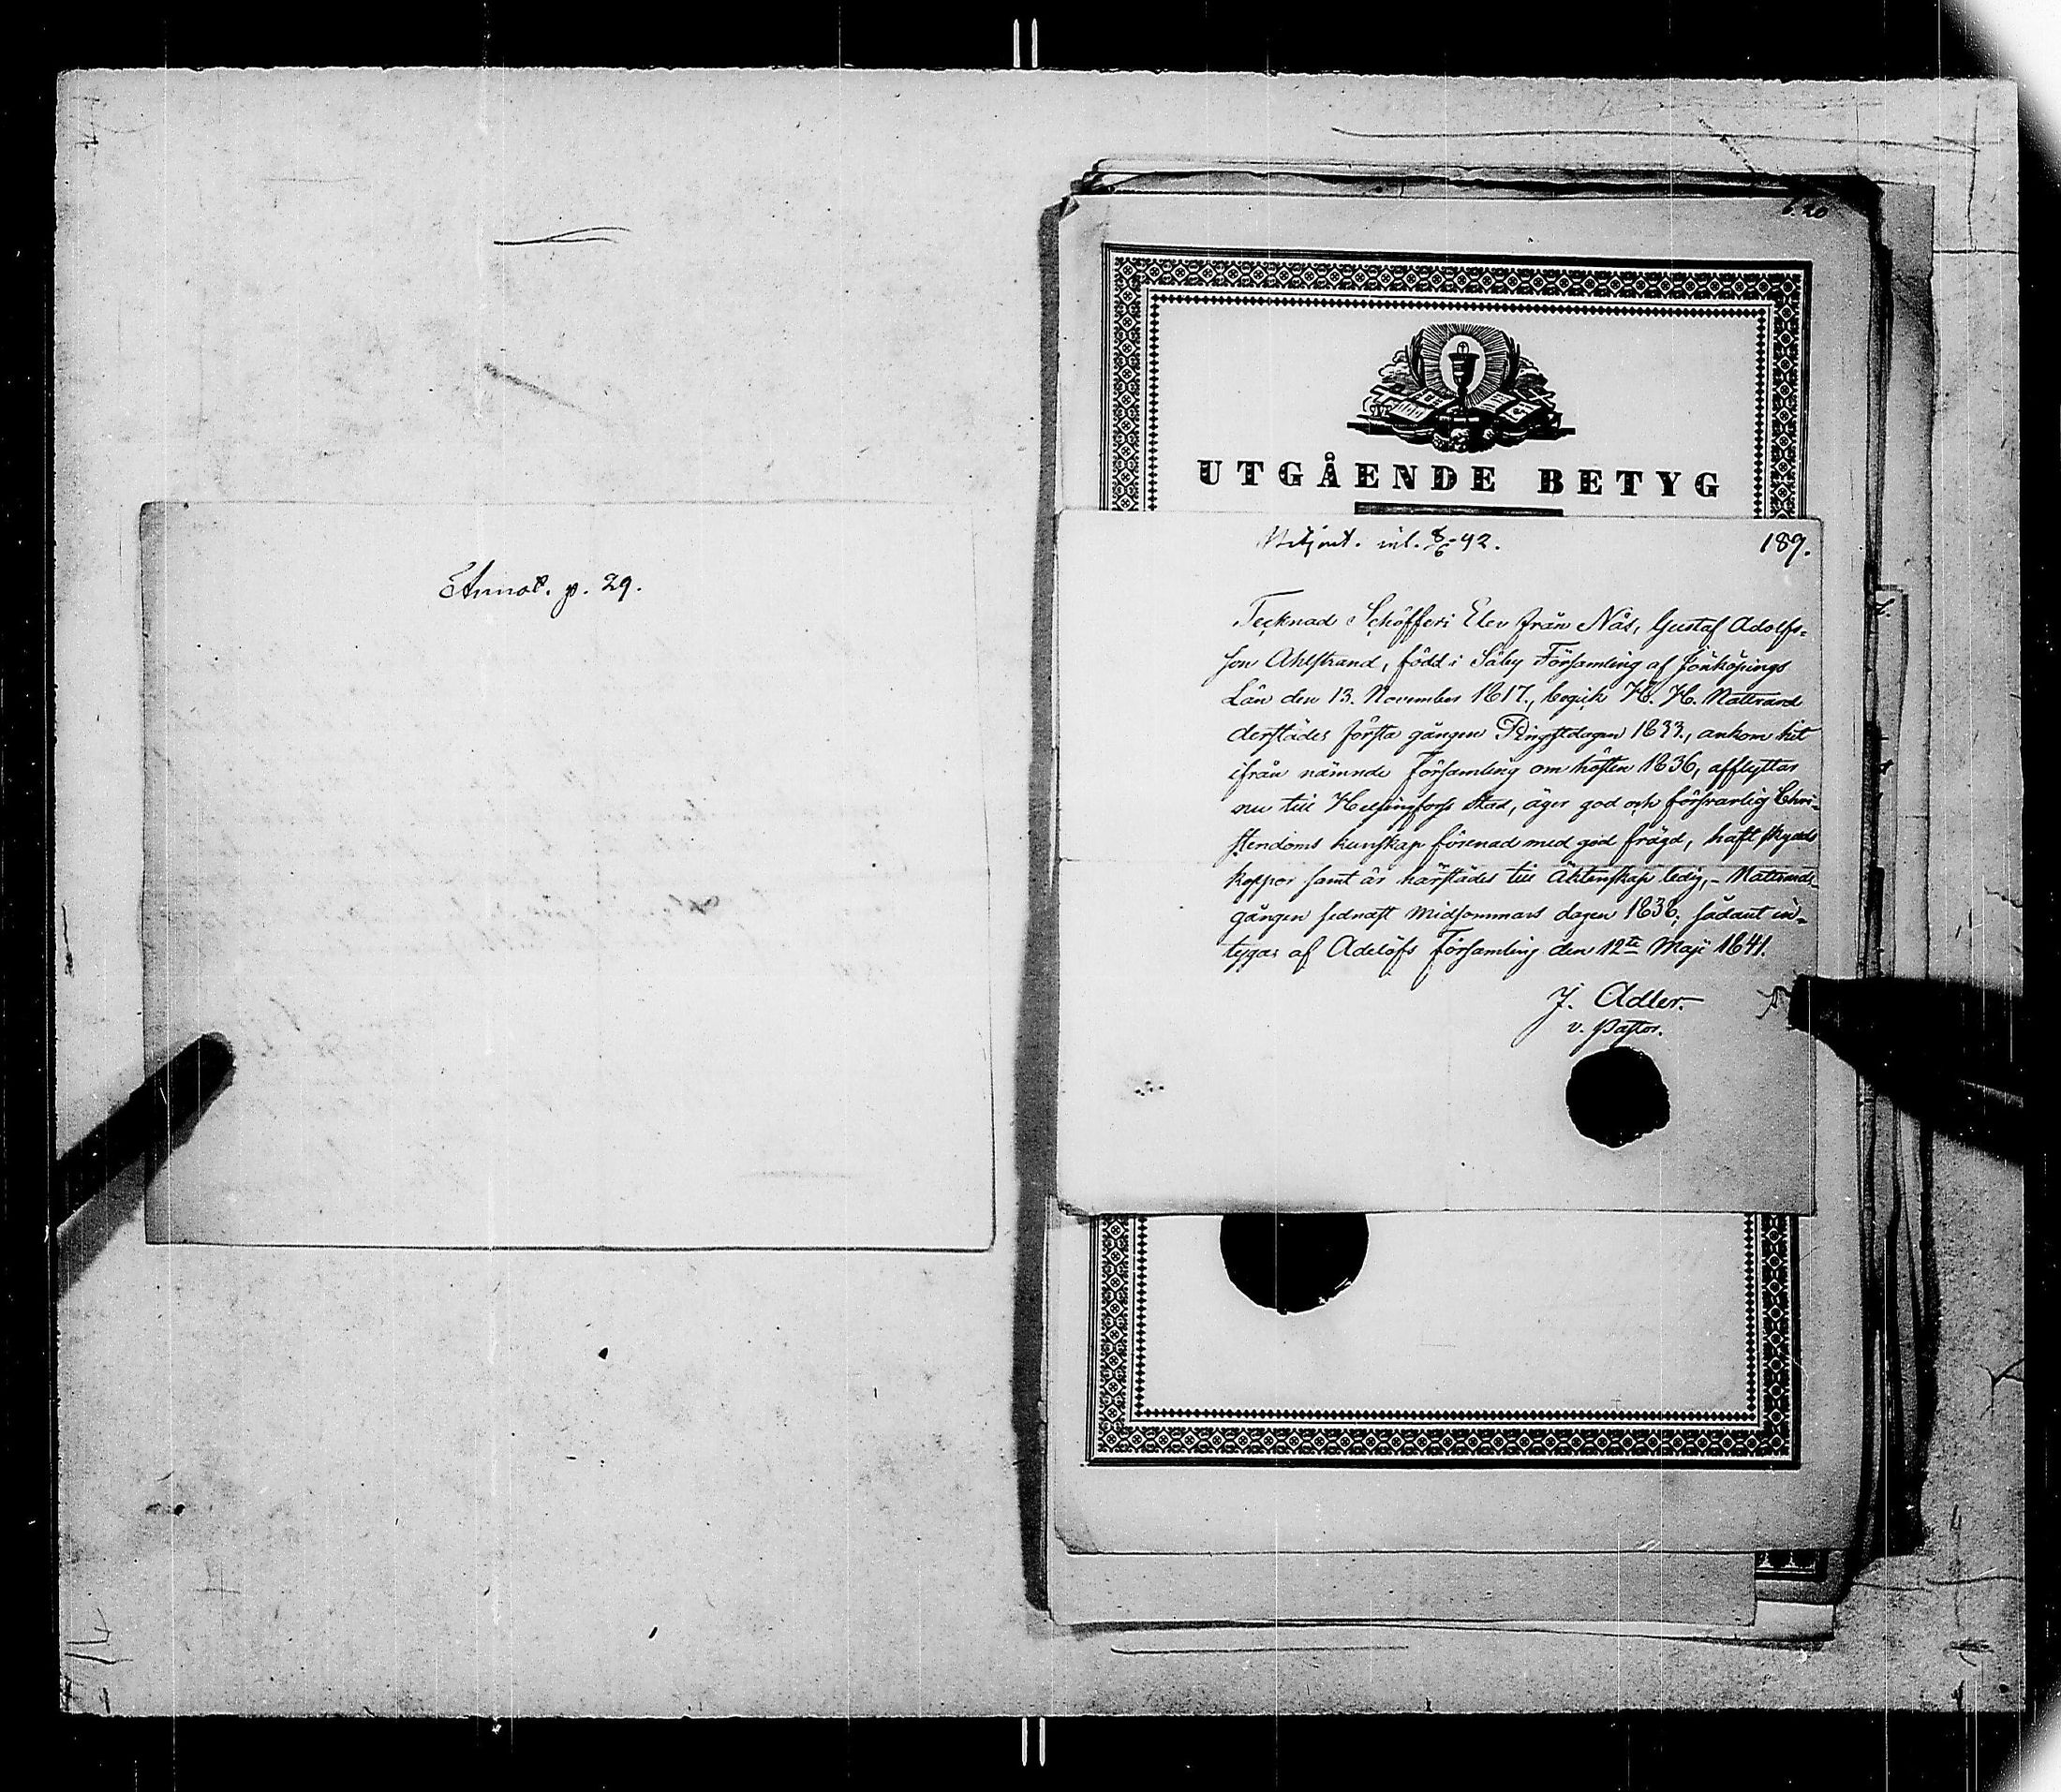 Annot. p. 29.
6.20
UTGÅENDE BETYG
inl. 8/6 42.
189.
Tecknad Schöfferi Elev från Näs, Gustaf Adolfs-
son Ahlstrand, född i Säby Församling af Jönköpings
Län den 13. November 1817., begick H. H. Nattvard
derstädes första gången Pingstdagen 1833., ankom hit
ifrån nämnde Församling om hösten 1836, afflyttar
nu till Helsingfors Stad, äger god och försvarlig Chri-
stendoms kunskap förenad med god frägd, haft skydds
koppor samt är härstädes till Äktenskap ledig, - Nattvards-
gången sednast Midsommars dagen 1838; sådant in-
tygas af Adelöfs Församling den 12te Maji 1841.
J. Adler.
v. Pastor.